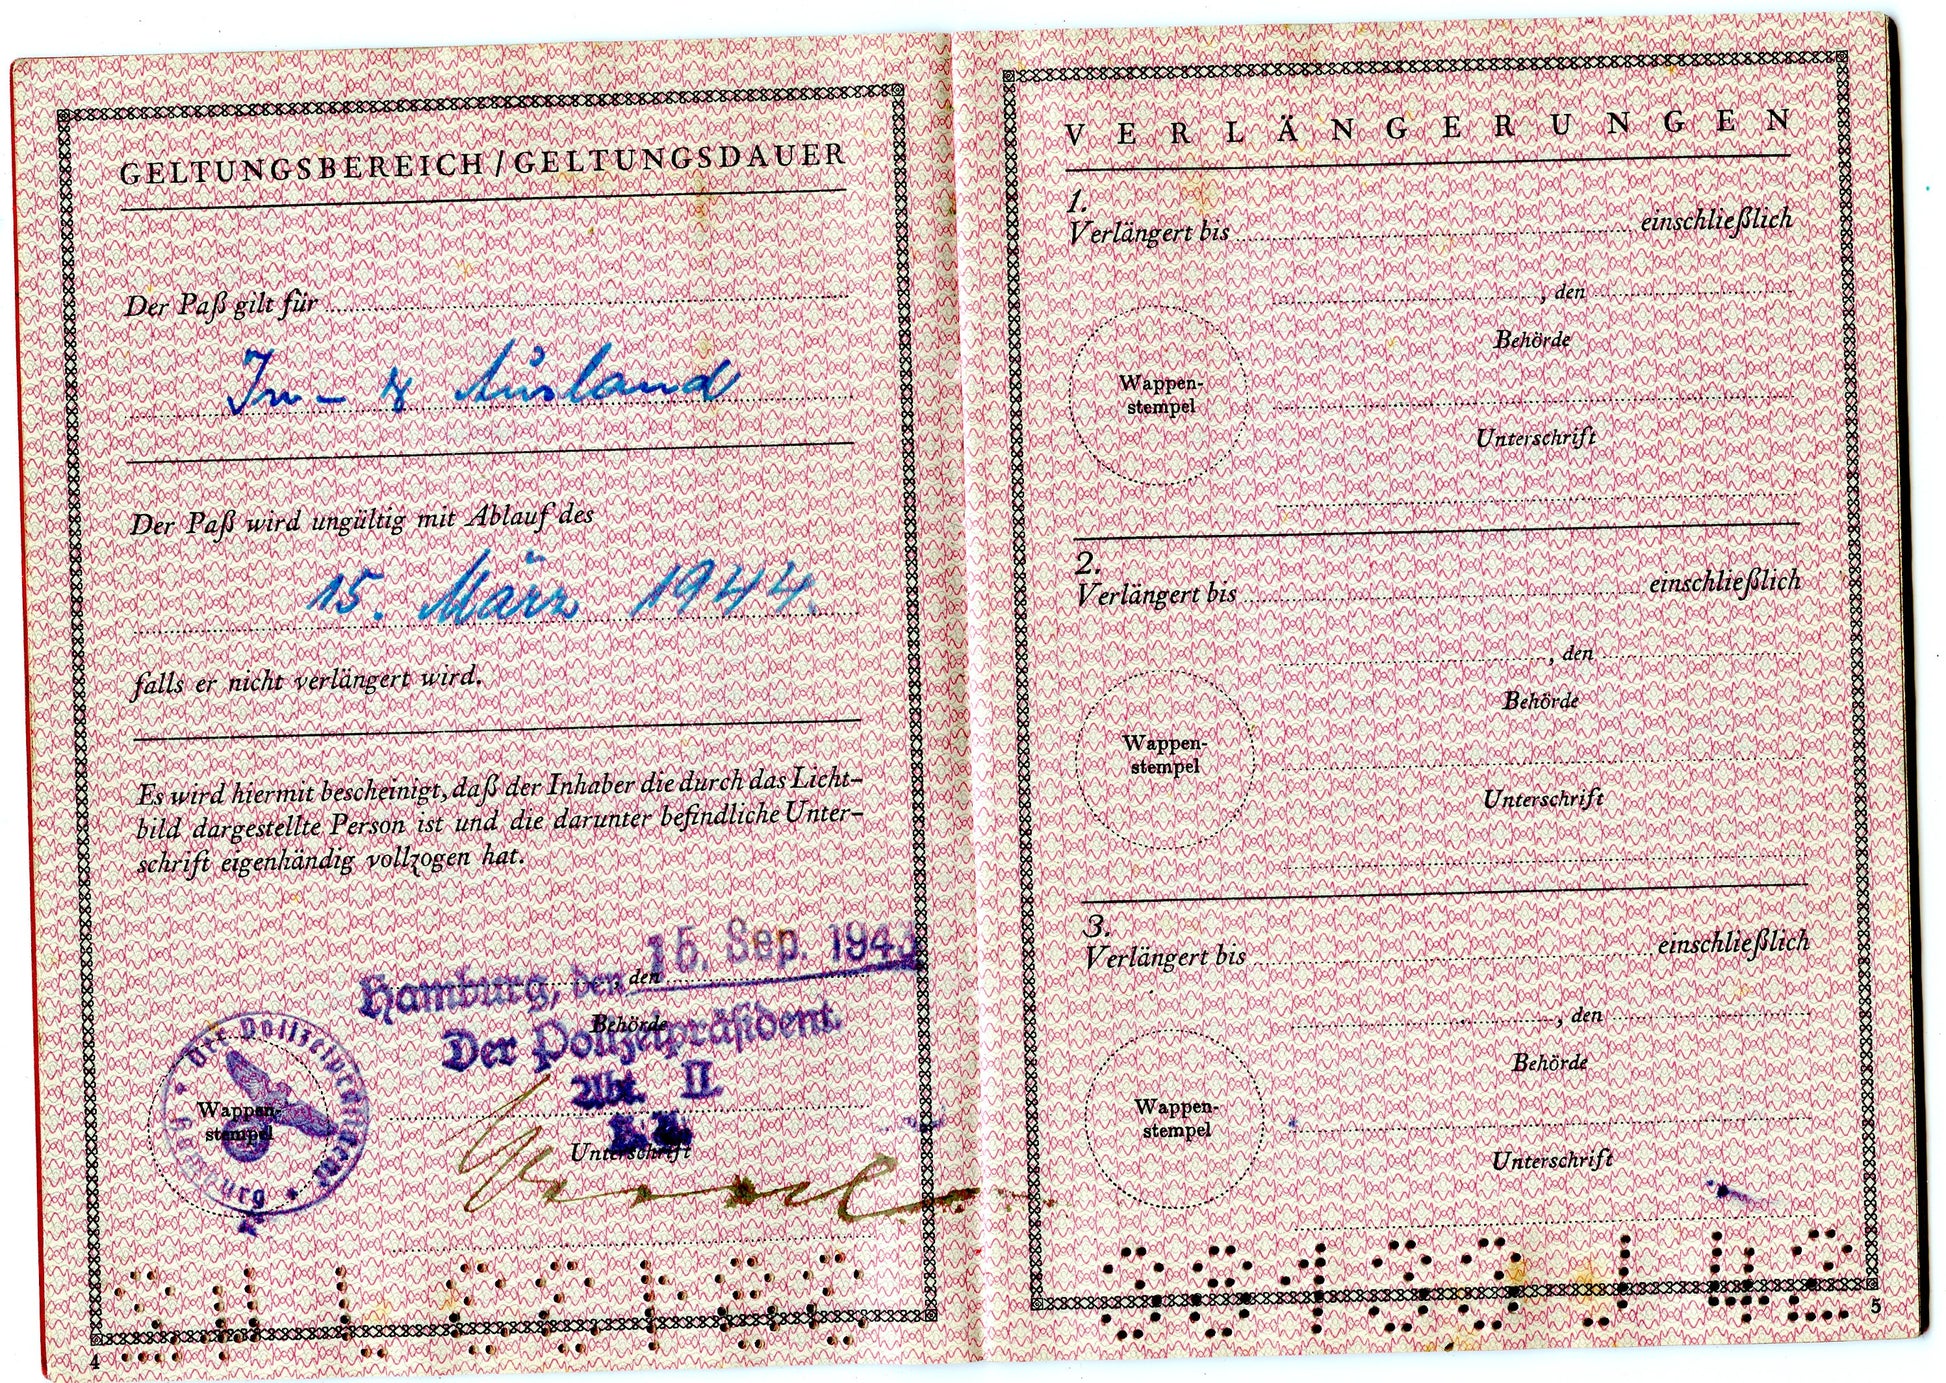 GELTUNGSBEREICH/GELTUNGSDAUER
Der Paß gilt für
In- & Ausland
Der Paß wird ungültig mit Ablauf des
15. März 1944.
falls er nicht verlängert wird.
Es wird hiermit bescheinigt, daß der Inhaber die durch das Licht-
bild dargestellte Person ist und die darunter befindliche Unter-
schrift eigenhändig vollzogen hat.
Hamburg, den 15. Sep. 1943
, den
Behörde
Der Polizeipräsident.
Abt. II.
Unterschrift
Der Polizeipräsident
Hamburg
Wappen-
stempel
4
VERLÄNGERUNGEN
1.
Verlängert bis einschließlich
, den
Behörde
Wappen-
stempel
Unterschrift
2.
Verlängert bis einschließlich
, den
Behörde
Wappen-
stempel
Unterschrift
3.
Verlängert bis einschließlich
, den
Behörde
Wappen-
stempel
Unterschrift
5